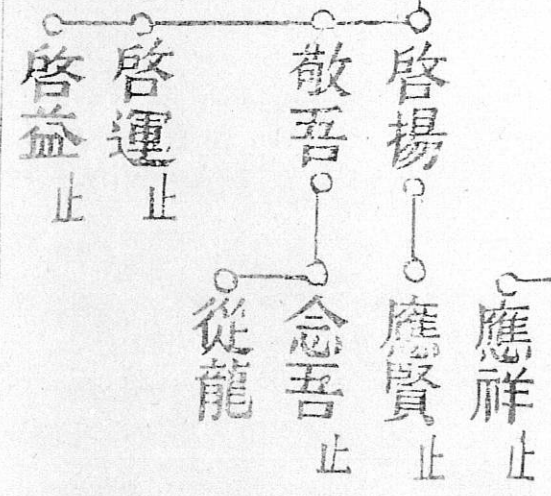 啓揚
敬吾
啓運止
啓益止
應祥止
應賢止
念吾止
從龍